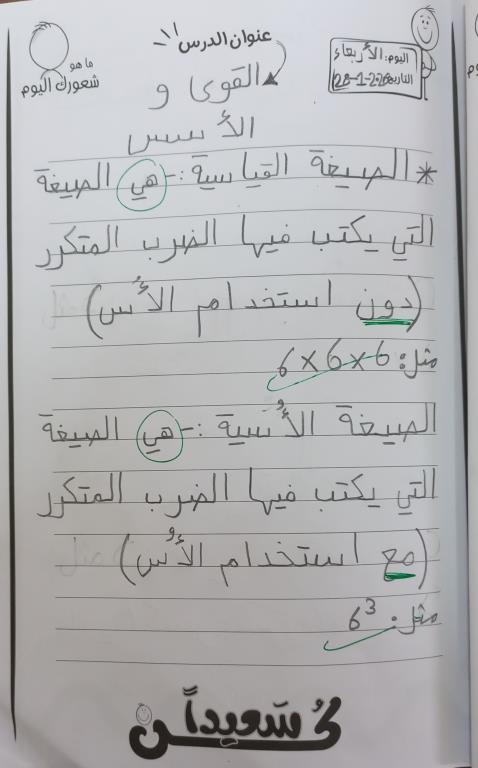 عنوان الدرس
اليوم: الأربعاء
التاريخ 28-1-22
ما هو
شعورك اليوم
القوى و
الأسس
* الصيغة القياسية :- هي الصيغة
التي يكتب فيها الضرب المتكرر
(دون استخدام الأُس)
مثل: 6×6×6
الصيغة الأُسية :- هي الصيغة
التي يكتب فيها الضرب المتكرر
(مع استخدام الأُس)
مثل: 6³
كُن سَعيداً